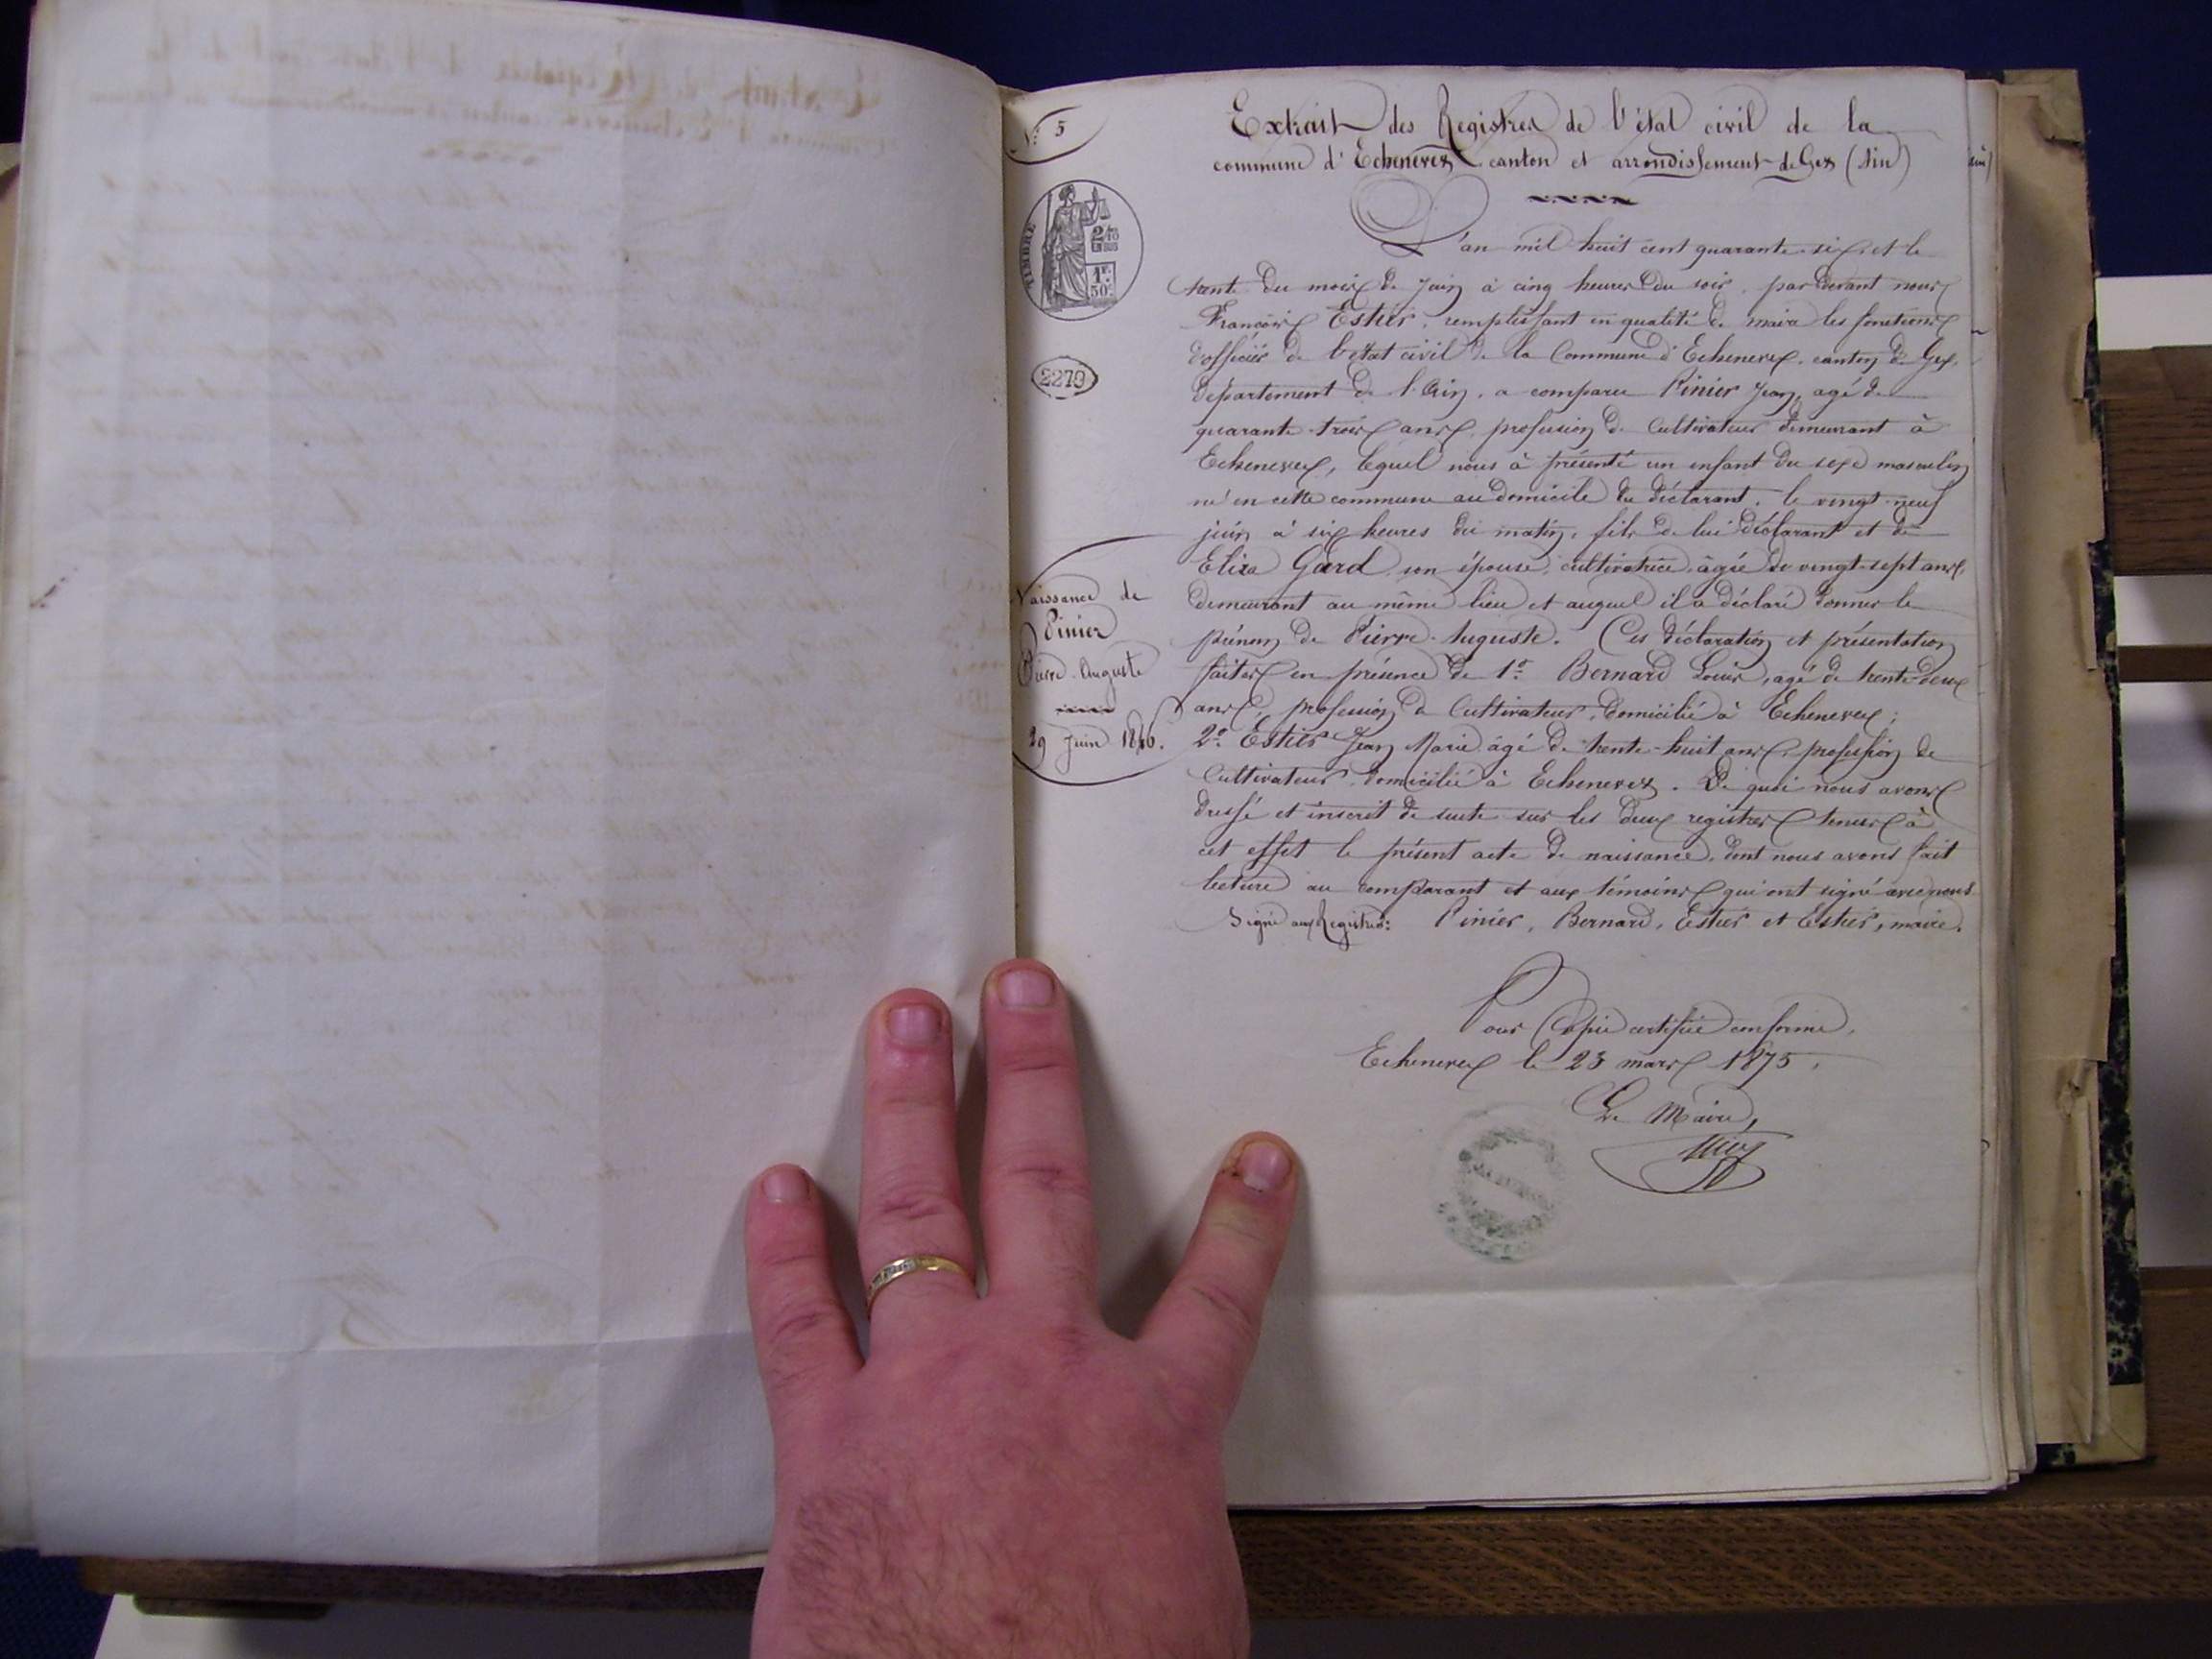 N° 5
Extrait des Registres de l'état civil de la
commune d'Echenevex canton et arrondissement de Gex (Ain)
TIMBRE
2/10
EN SUS
1F.
50c.
2279
L'an mil huit cent quarante-six, et le
trente du mois de Juin à cinq heures du soir, par devant nous
François Estier, remplissant en qualité de maire les fonctions
d'officier de l'état civil de la Commune d'Echenevex, canton de Gex,
département de l'Ain, a comparu Pinier Jean, agé de
quarante-trois ans, profession de Cultivateur demeurant à
Echenevex, lequel nous à présenté un enfant du sexe masculin
né en cette commune au domicile du déclarant, le vingt-neuf
juin à six heures du matin, fils de lui déclarant et de
Eliza Gard son épouse, cultivatrice, âgée de vingt-sept ans,
demeurant au même lieu et auquel il a déclaré donner le
prénom de Pierre-Auguste. Ces déclaration et présentation
faites en présence de 1° Bernard Louis, agé de trente-deux
ans, profession de Cultivateur, domicilié à Echenevex;
2° Estier Jean Marie âgé de trente-huit ans, profession de
Cultivateur domicilié à Echenevex. De quoi nous avons
dressé et inscrit de suite sur les deux registres tenus à
cet effet le présent acte de naissance, dont nous avons fait
lecture au comparant et aux témoins qui ont signé avec nous
Signé aux Registres: Pinier, Bernard, Estier et Estier, maire.
Naissance de
Pinier
Pierre-Auguste
29 Juin 1846.
Pour Copie certifiée conforme,
Echenevex le 23 mars 1875.
Le Maire,